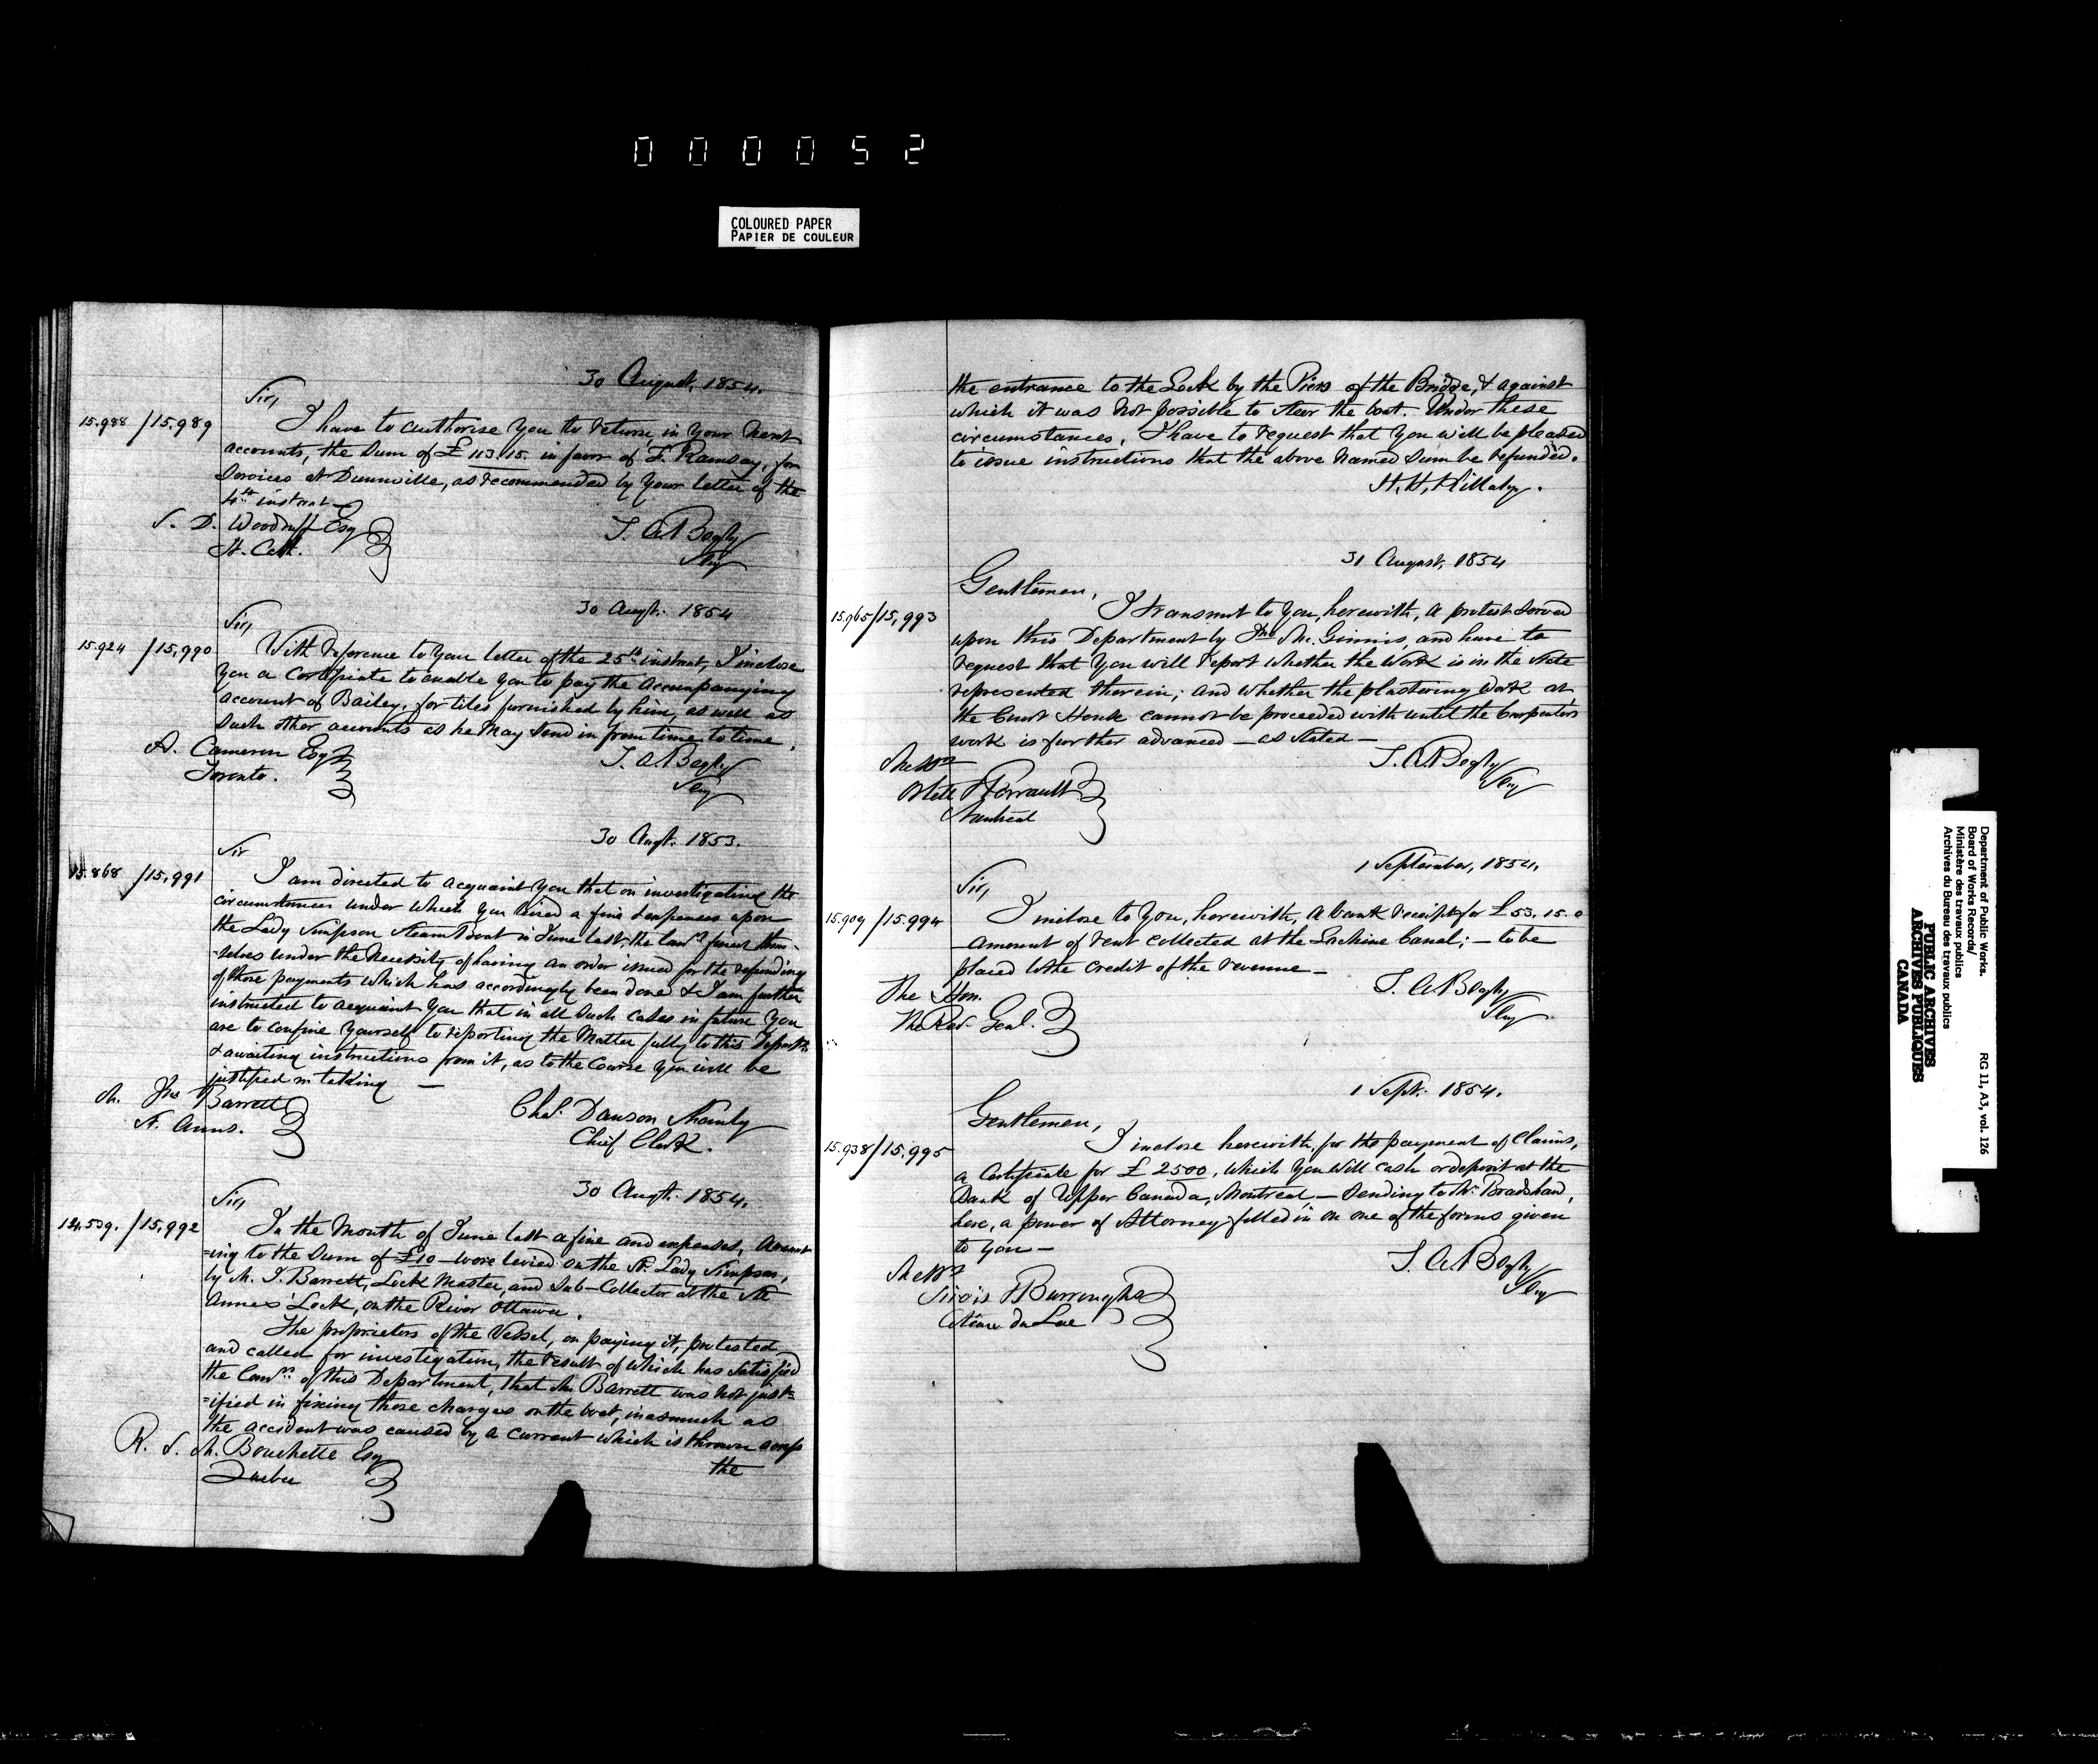 000052
COLOURED PAPER
PAPIER DE COULEUR
30 August, 1854.
Sir,
15.988 / 15.989
I have to authorise you to return, in your next
accounts, the sum of £113.15. in favor of S. Ramsay, for
services at Dunnville, as recommended by your letter of the
4th instant
S. D. Woodruff Esq
St. Cath.
T. A. Begly
Secy
30 Augt. 1854
Sir,
15.924 / 15,990
With reference to your letter of the 25th instant, I inclose
you a Certificate to enable you to pay the accompanying
account of Bailey, for tiles furnished by him, as well as
such other accounts as he may send in from time to time.
A. Cameron Esq
Toronto.
T. A. Begly
Secy
30 Augt. 1853.
Sir
15.868 / 15,991
I am directed to acquaint you that on investigating the
circumstances under which you levied a fine & expenses upon
the Lady Simpson Steam Boat in June last, the Comrs found them-
-selves under the necessity of having an order issued for the refunding
of those payments which has accordingly been done & I am further
instructed to acquaint you that in all such cases in future you
are to confine yourself to reporting the matter fully to this Departt
& awaiting instructions from it, as to the course you will be
justified in taking —
M. Jno Barrett
St. Anns.
Chas. Dawson Shanly
Chief Clerk.
30 Augt. 1854.
Sir,
14.539. / 15,992
In the Month of June last a fine and expenses, amount
=ing to the sum of £10 — were levied on the St. Lady Simpson,
by M. J. Barrett, Lock Master, and Sub-Collector at the Ste
Annes' Lock, on the River Ottawa.
The proprietors of the Vessel, on paying it, protested
and called for investigation, the result of which has satisfied
the Comrs of this Department, that Mr Barrett was not just=
=ified in fixing those charges on the boat, inasmuch as
the accident was caused by a current which is thrown across
R. S. M. Bouchette Esq
Quebec
the
the entrance to the Lock by the Piers of the Bridge, & against
which it was not possible to steer the boat. Under these
circumstances, I have to request that you will be pleased
to issue instructions that the above named sum be refunded.
H. H. Killaly.
31 August, 1854
Gentlemen,
15.965 / 15,993
I transmit to you, herewith, a protest served
upon this Department by Jno Mc.Ginnis, and have to
request that you will report whether the work is in the state
represented therein; and whether the plastering work at
the Court House cannot be proceeded with until the Carpenters
work is further advanced — as stated —
Messrs
Ostell & Perrault
Montreal
T. A. Begly
Secy
1 September, 1854.
Sir,
15.909 / 15.994
I inclose to you, herewith, a bank receipt for £53.15.0
amount of rent collected at the Lachine Canal; — to be
placed to the credit of the revenue —
The Hon.
The Rec. Genl.
T. A. Begly
Secy
1 Sept. 1854.
Gentlemen,
15.938 / 15.995
I inclose herewith, for the payment of claims,
a Certificate for £2500, which you will cash or deposit at the
Bank of Upper Canada, Montreal — sending to Mr Bradshaw,
here, a power of Attorney filled in on one of the forms given
to you —
Messrs
Sirois & Burroughs
Côteau du Lac
T. A. Begly
Secy
Department of Public Works. RG 11, A3, vol. 126
Board of Works Records/
Ministère des travaux publics
Archives du Bureau des travaux publics
PUBLIC ARCHIVES
ARCHIVES PUBLIQUES
CANADA